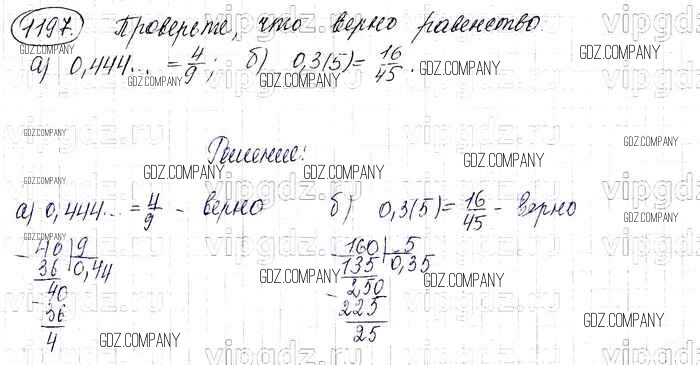 1197. Проверьте, что верно равенство.
а) 0,444... = 4/9; б) 0,3(5) = 16/45.
GDZ.COMPANY GDZ.COMPANY GDZ.COMPANY
Решение:
а) 0,444... = 4/9 - верно б) 0,3(5) = 16/45 - верно
40 | 9 160 | 5
36 0,44 135 0,35
40 250
36 225
4 25
GDZ.COMPANY
vipgdz.ru